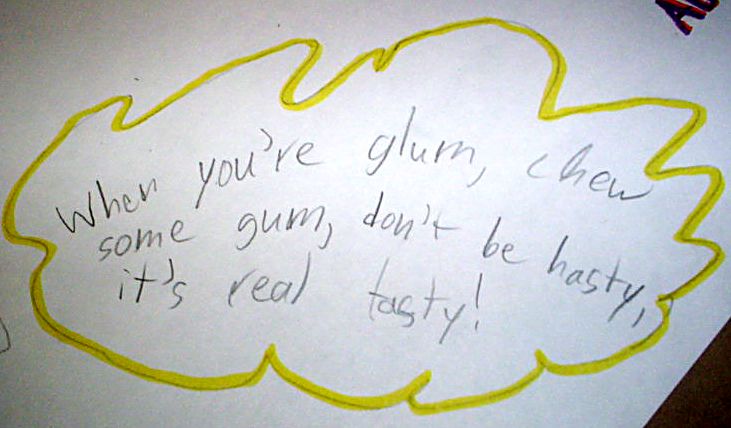 When you're glum, chew
some gum, don't be hasty,
it's real tasty!